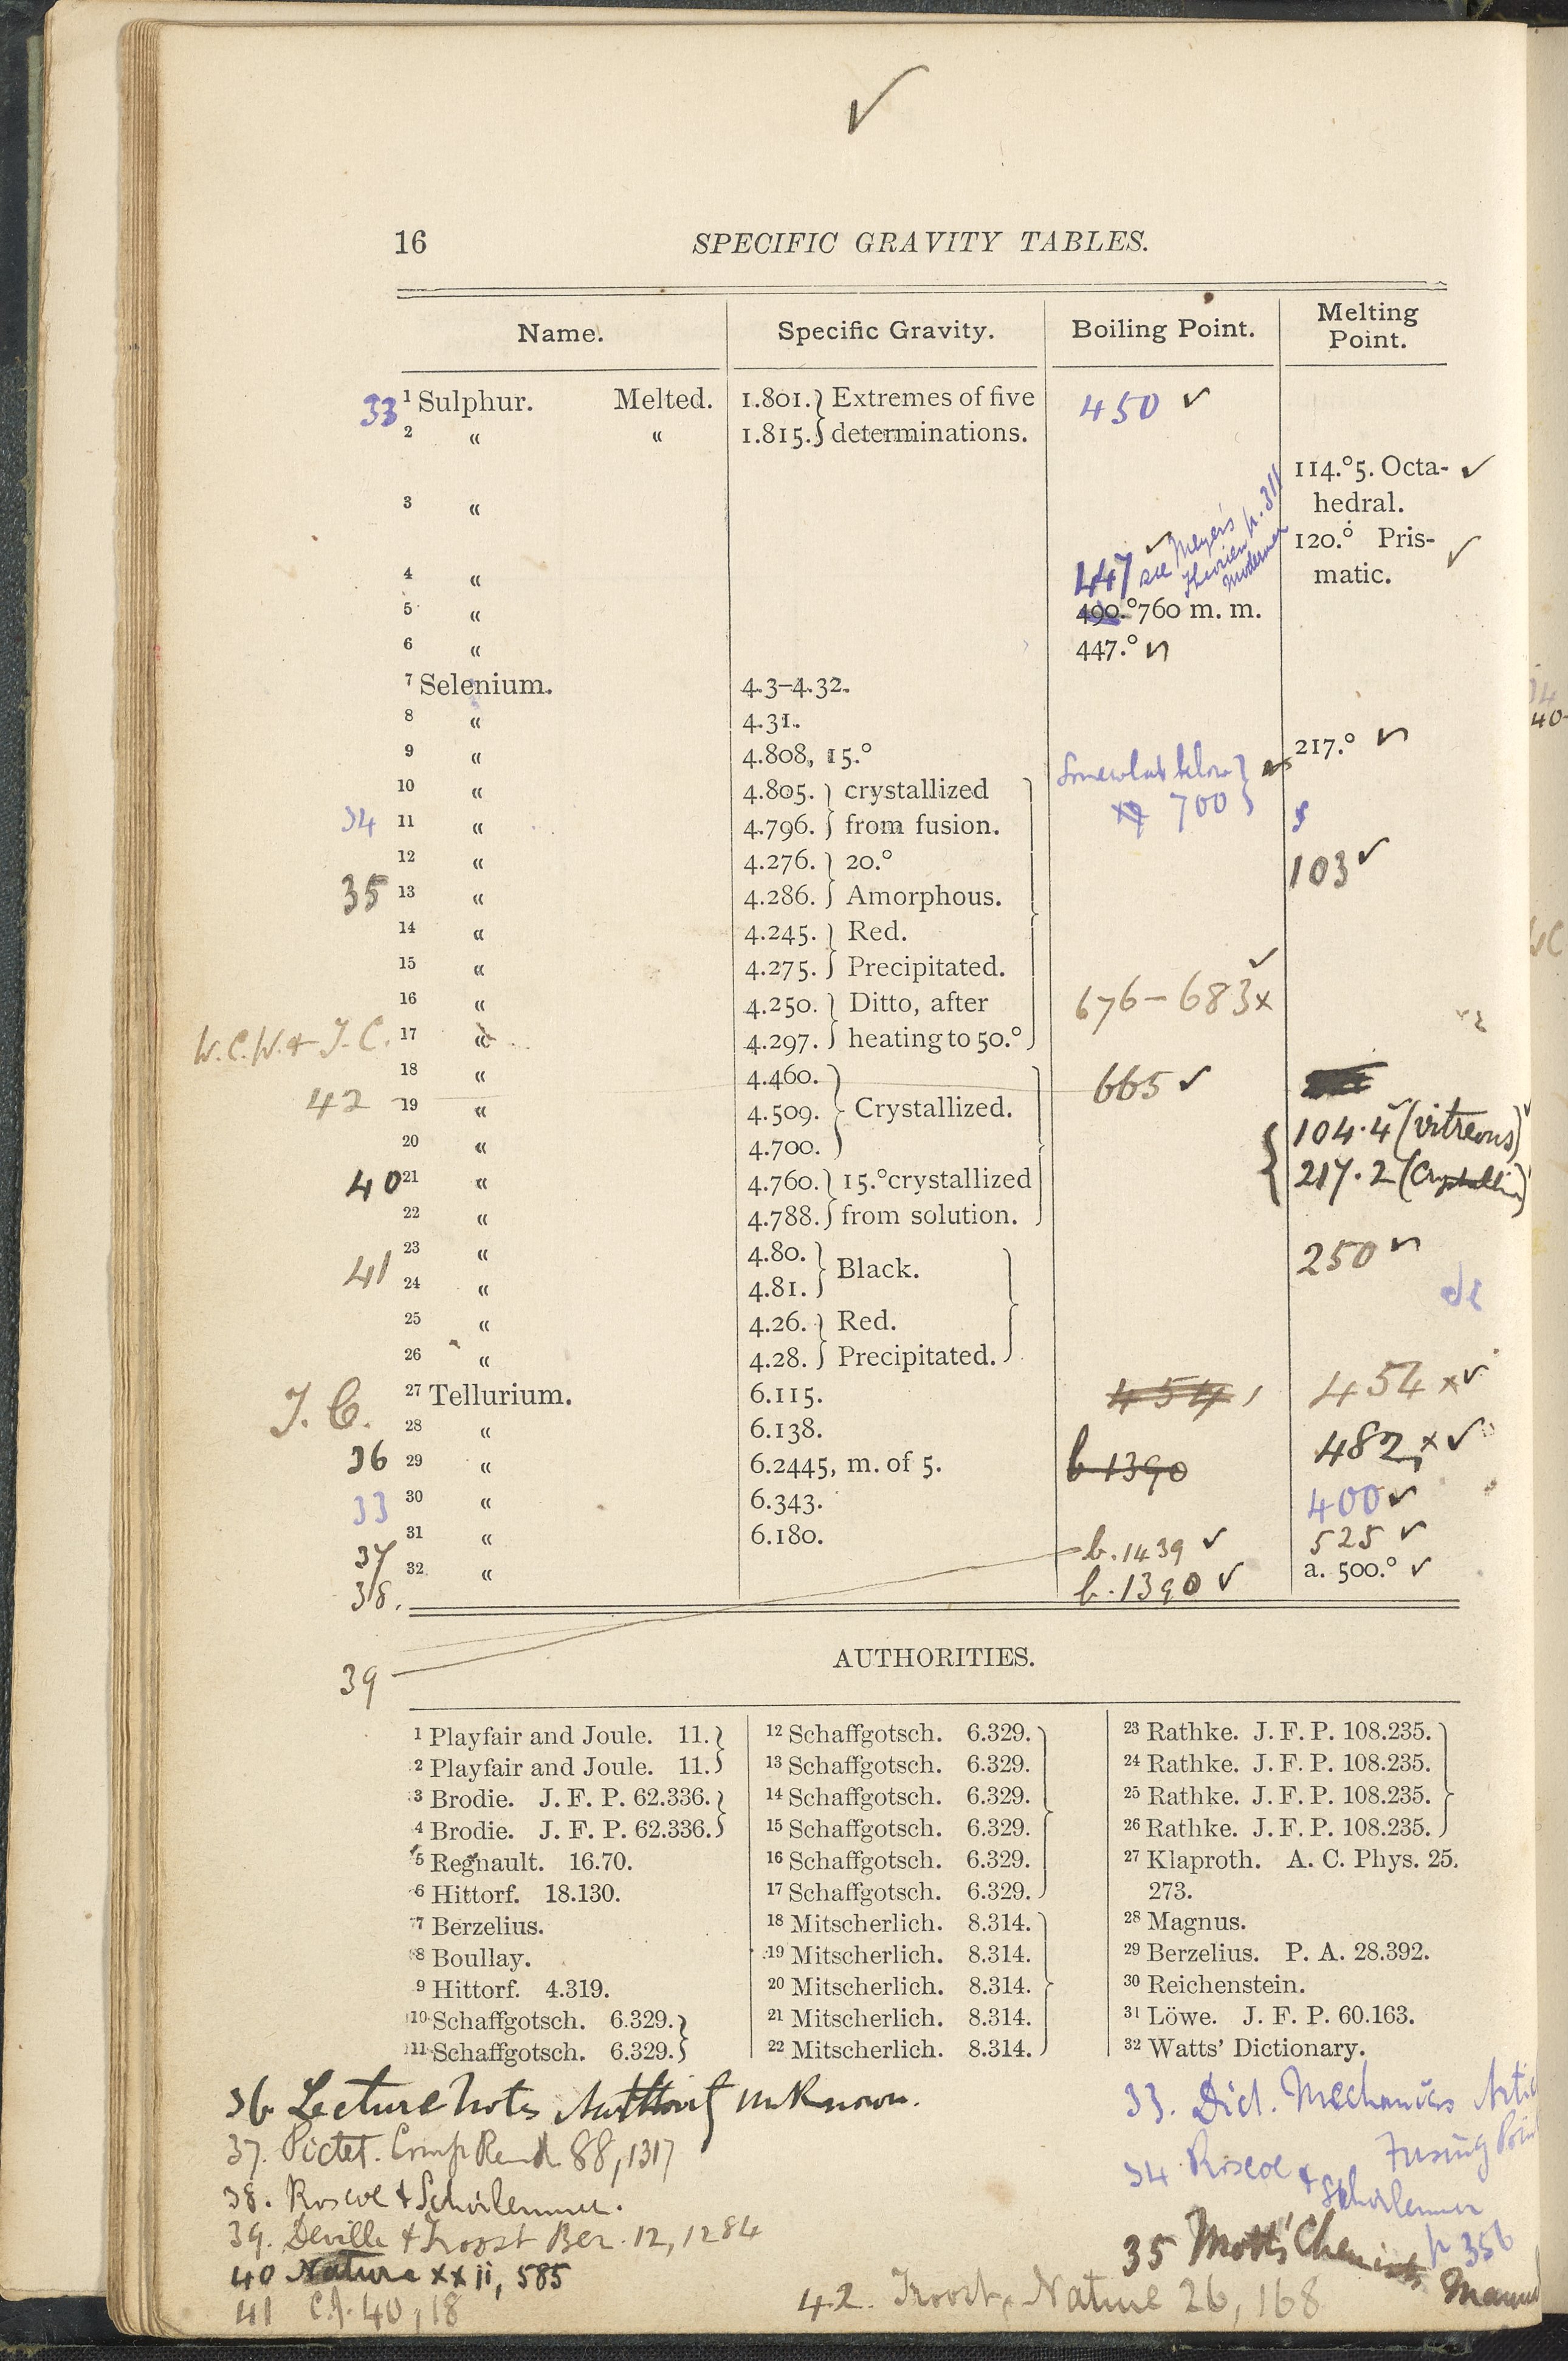 ✓
16 SPECIFIC GRAVITY TABLES.
Name. Specific Gravity. Boiling Point. Melting Point.
33 1 Sulphur. Melted. 1.801. } Extremes of five 450 ✓
2 " " 1.815. } determinations.
3 " 114.°5. Octa- ✓
hedral.
4 " 447 ✓ see Meyer's Theorien p. 311 120.° Pris- ✓
Modernen matic.
5 " 490.° 760 m. m.
6 " 447.° ✓
7 Selenium. 4.3–4.32.
8 " 4.31.
9 " 4.808, 15.° 217.° ✓
10 " 4.805. } crystallized Somewhat below
34 11 " 4.796. } from fusion. 700
12 " 4.276. } 20.° 103 ✓
35 13 " 4.286. } Amorphous.
14 " 4.245. } Red.
15 " 4.275. } Precipitated.
16 " 4.250. } Ditto, after 676–683 x ✓
W.C.W. & T.C. 17 " 4.297. } heating to 50.°
18 " 4.460. 665 ✓
42 19 " 4.509. } Crystallized. 104.4 (vitreous) ✓
20 " 4.700.
40 21 " 4.760. } 15.° crystallized 217.2 (Crystalline)
22 " 4.788. } from solution.
23 " 4.80. } Black. 250 ✓
41 24 " 4.81.
25 " 4.26. } Red.
26 " 4.28. } Precipitated.
T.C. 27 Tellurium. 6.115. 454 454 x ✓
28 " 6.138. 482 x ✓
36 29 " 6.2445, m. of 5. b 1390
33 30 " 6.343. 400 ✓
31 " 6.180. b. 1439 ✓ 525 ✓
37 32 " b. 1390 ✓ a. 500.° ✓
38.
39
AUTHORITIES.
1 Playfair and Joule. 11.
2 Playfair and Joule. 11.
3 Brodie. J. F. P. 62.336.
4 Brodie. J. F. P. 62.336.
5 Regnault. 16.70.
6 Hittorf. 18.130.
7 Berzelius.
8 Boullay.
9 Hittorf. 4.319.
10 Schaffgotsch. 6.329.
11 Schaffgotsch. 6.329.
12 Schaffgotsch. 6.329.
13 Schaffgotsch. 6.329.
14 Schaffgotsch. 6.329.
15 Schaffgotsch. 6.329.
16 Schaffgotsch. 6.329.
17 Schaffgotsch. 6.329.
18 Mitscherlich. 8.314.
19 Mitscherlich. 8.314.
20 Mitscherlich. 8.314.
21 Mitscherlich. 8.314.
22 Mitscherlich. 8.314.
23 Rathke. J. F. P. 108.235.
24 Rathke. J. F. P. 108.235.
25 Rathke. J. F. P. 108.235.
26 Rathke. J. F. P. 108.235.
27 Klaproth. A. C. Phys. 25.
273.
28 Magnus.
29 Berzelius. P. A. 28.392.
30 Reichenstein.
31 Löwe. J. F. P. 60.163.
32 Watts' Dictionary.
36 Lecture Notes Authority unknown.
37. Pictet. Comp Rend. 88, 1317
38. Roscoe & Schorlemmer.
39. Deville & Troost Ber. 12, 1284
40 Nature xxii, 585
41 C.J. 40, 18
33. Dict. Mechanics
Fusing
34 Roscoe & Schorlemmer
p 356
35 Mott's Chemists
42. Troost, Nature 26, 168